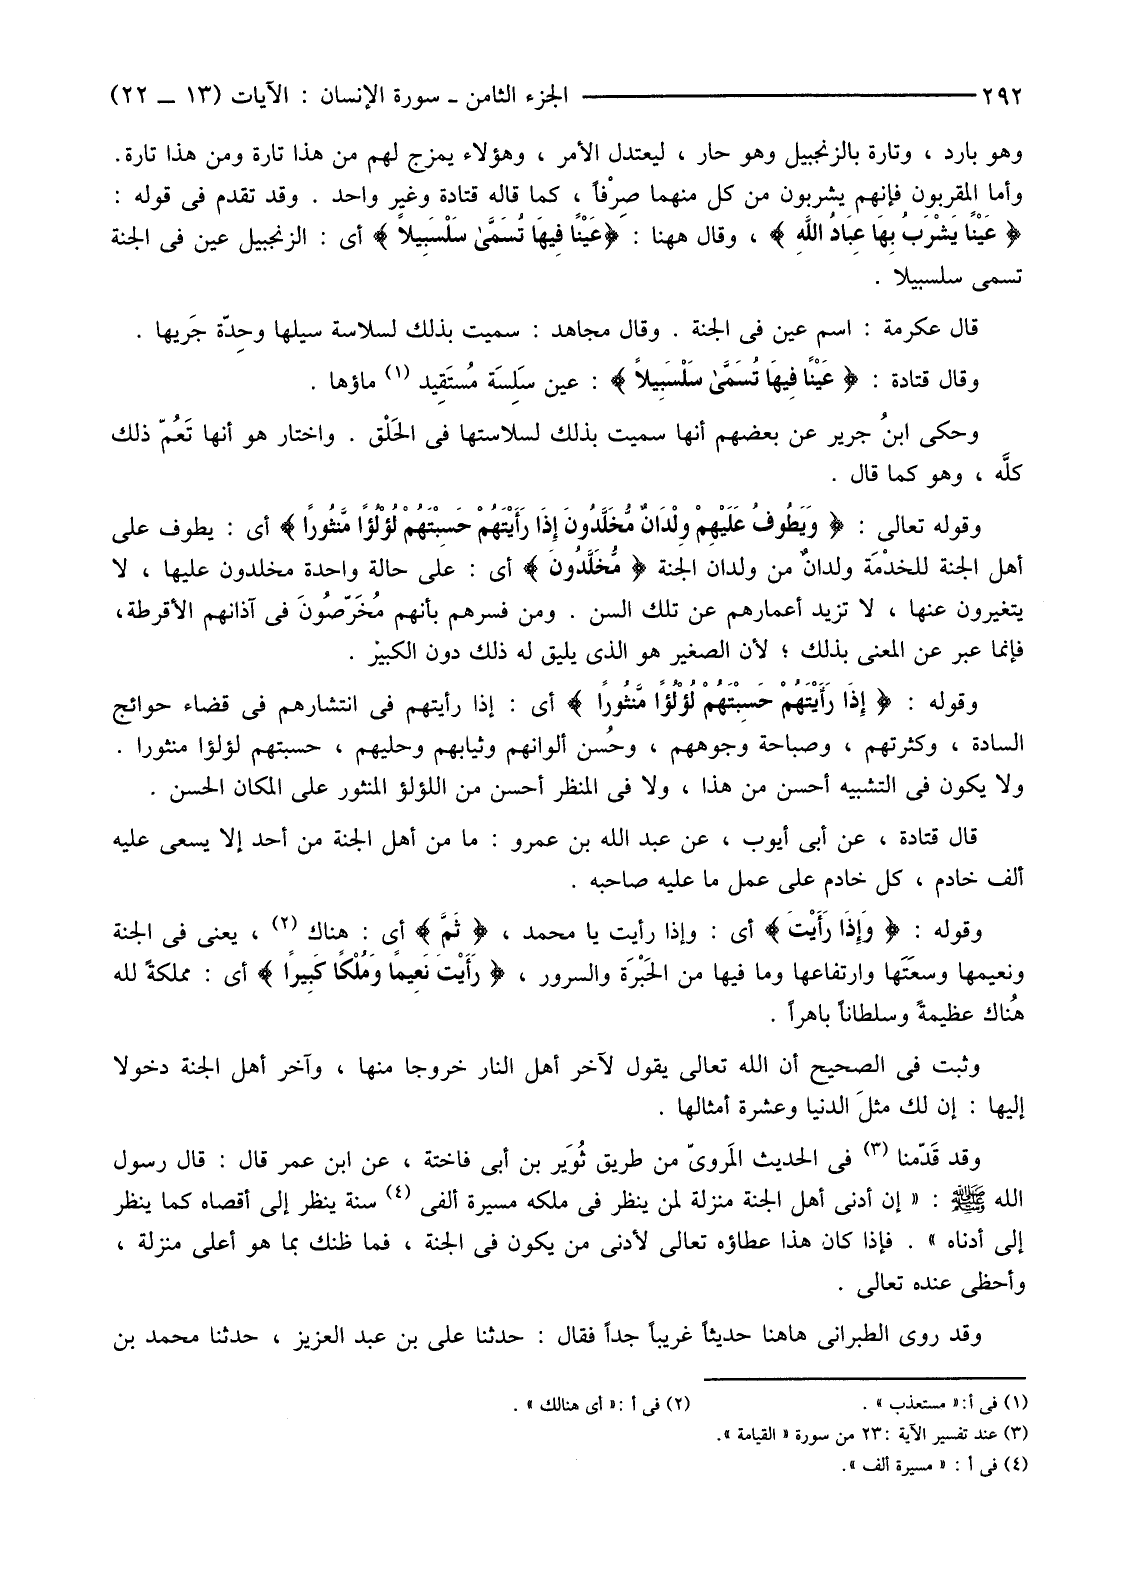 ٢٩٢ ــــــــــــــــ الجزء الثامن ـ سورة الإنسان : الآيات (١٣ ــ ٢٢)
وهو بارد ، وتارة بالزنجبيل وهو حار ، ليعتدل الأمر ، وهؤلاء يمزج لهم من هذا تارة ومن هذا تارة.
وأما المقربون فإنهم يشربون من كل منهما صِرْفاً ، كما قاله قتادة وغير واحد . وقد تقدم فى قوله :
﴿ عَيْنًا يَشْرَبُ بِهَا عِبَادُ اللَّهِ ﴾ ، وقال ههنا : ﴿عَيْنًا فِيهَا تُسَمَّىٰ سَلْسَبِيلاً ﴾ أى : الزنجبيل عين فى الجنة
تسمى سلسبيلا .
قال عكرمة : اسم عين فى الجنة . وقال مجاهد : سميت بذلك لسلاسة سيلها وحِدّة جَريها .
وقال قتادة : ﴿ عَيْنًا فِيهَا تُسَمَّىٰ سَلْسَبِيلاً ﴾ : عين سَلِسَة مُستَقِيد (١) ماؤها .
وحكى ابنُ جرير عن بعضهم أنها سميت بذلك لسلاستها فى الحَلْق . واختار هو أنها تَعُمّ ذلك
كلَّه ، وهو كما قال .
وقوله تعالى : ﴿ وَيَطُوفُ عَلَيْهِمْ وِلْدَانٌ مُّخَلَّدُونَ إِذَا رَأَيْتَهُمْ حَسِبْتَهُمْ لُؤْلُؤًا مَّنثُورًا ﴾ أى : يطوف على
أهل الجنة للخدْمَة ولدانٌ من ولدان الجنة ﴿ مُّخَلَّدُونَ ﴾ أى : على حالة واحدة مخلدون عليها ، لا
يتغيرون عنها ، لا تزيد أعمارهم عن تلك السن . ومن فسرهم بأنهم مُخَرّصُونَ فى آذانهم الأقرطة،
فإنما عبر عن المعنى بذلك ؛ لأن الصغير هو الذى يليق له ذلك دون الكبيرْ .
وقوله : ﴿ إِذَا رَأَيْتَهُمْ حَسِبْتَهُمْ لُؤْلُؤًا مَّنثُورًا ﴾ أى : إذا رأيتهم فى انتشارهم فى قضاء حوائج
السادة ، وكثرتهم ، وصباحة وجوههم ، وحُسن ألوانهم وثيابهم وحليهم ، حسبتهم لؤلؤا منثورا .
ولا يكون فى التشبيه أحسن من هذا ، ولا فى المنظر أحسن من اللؤلؤ المنثور على المكان الحسن .
قال قتادة ، عن أبى أيوب ، عن عبد الله بن عمرو : ما من أهل الجنة من أحد إلا يسعى عليه
ألف خادم ، كل خادم على عمل ما عليه صاحبه .
وقوله : ﴿ وَإِذَا رَأَيْتَ ﴾ أى : وإذا رأيت يا محمد ، ﴿ ثَمَّ ﴾ أى : هناك (٢) ، يعنى فى الجنة
ونعيمها وسعَتَها وارتفاعها وما فيها من الحَبْرَة والسرور ، ﴿ رَأَيْتَ نَعِيمًا وَمُلْكًا كَبِيرًا ﴾ أى : مملكةً لله
هُناك عظيمةً وسلطاناً باهراً .
وثبت فى الصحيح أن الله تعالى يقول لآخر أهل النار خروجا منها ، وآخر أهل الجنة دخولا
إليها : إن لك مثلَ الدنيا وعشرة أمثالها .
وقد قَدّمنا (٣) فى الحديث المَروىّ من طريق ثُوَير بن أبى فاختة ، عن ابن عمر قال : قال رسول
الله ﷺ : « إن أدنى أهل الجنة منزلة لمن ينظر فى ملكه مسيرة ألفى (٤) سنة ينظر إلى أقصاه كما ينظر
إلى أدناه » . فإذا كان هذا عطاؤه تعالى لأدنى من يكون فى الجنة ، فما ظنك بما هو أعلى منزلة ،
وأحظى عنده تعالى .
وقد روى الطبرانى هاهنا حديثاً غريباً جداً فقال : حدثنا على بن عبد العزيز ، حدثنا محمد بن
(١) فى أ:« مستعذب » . (٢) فى أ :« أى هنالك » .
(٣) عند تفسير الآية :٢٣ من سورة « القيامة ».
(٤) فى أ : « مسيرة ألف ».